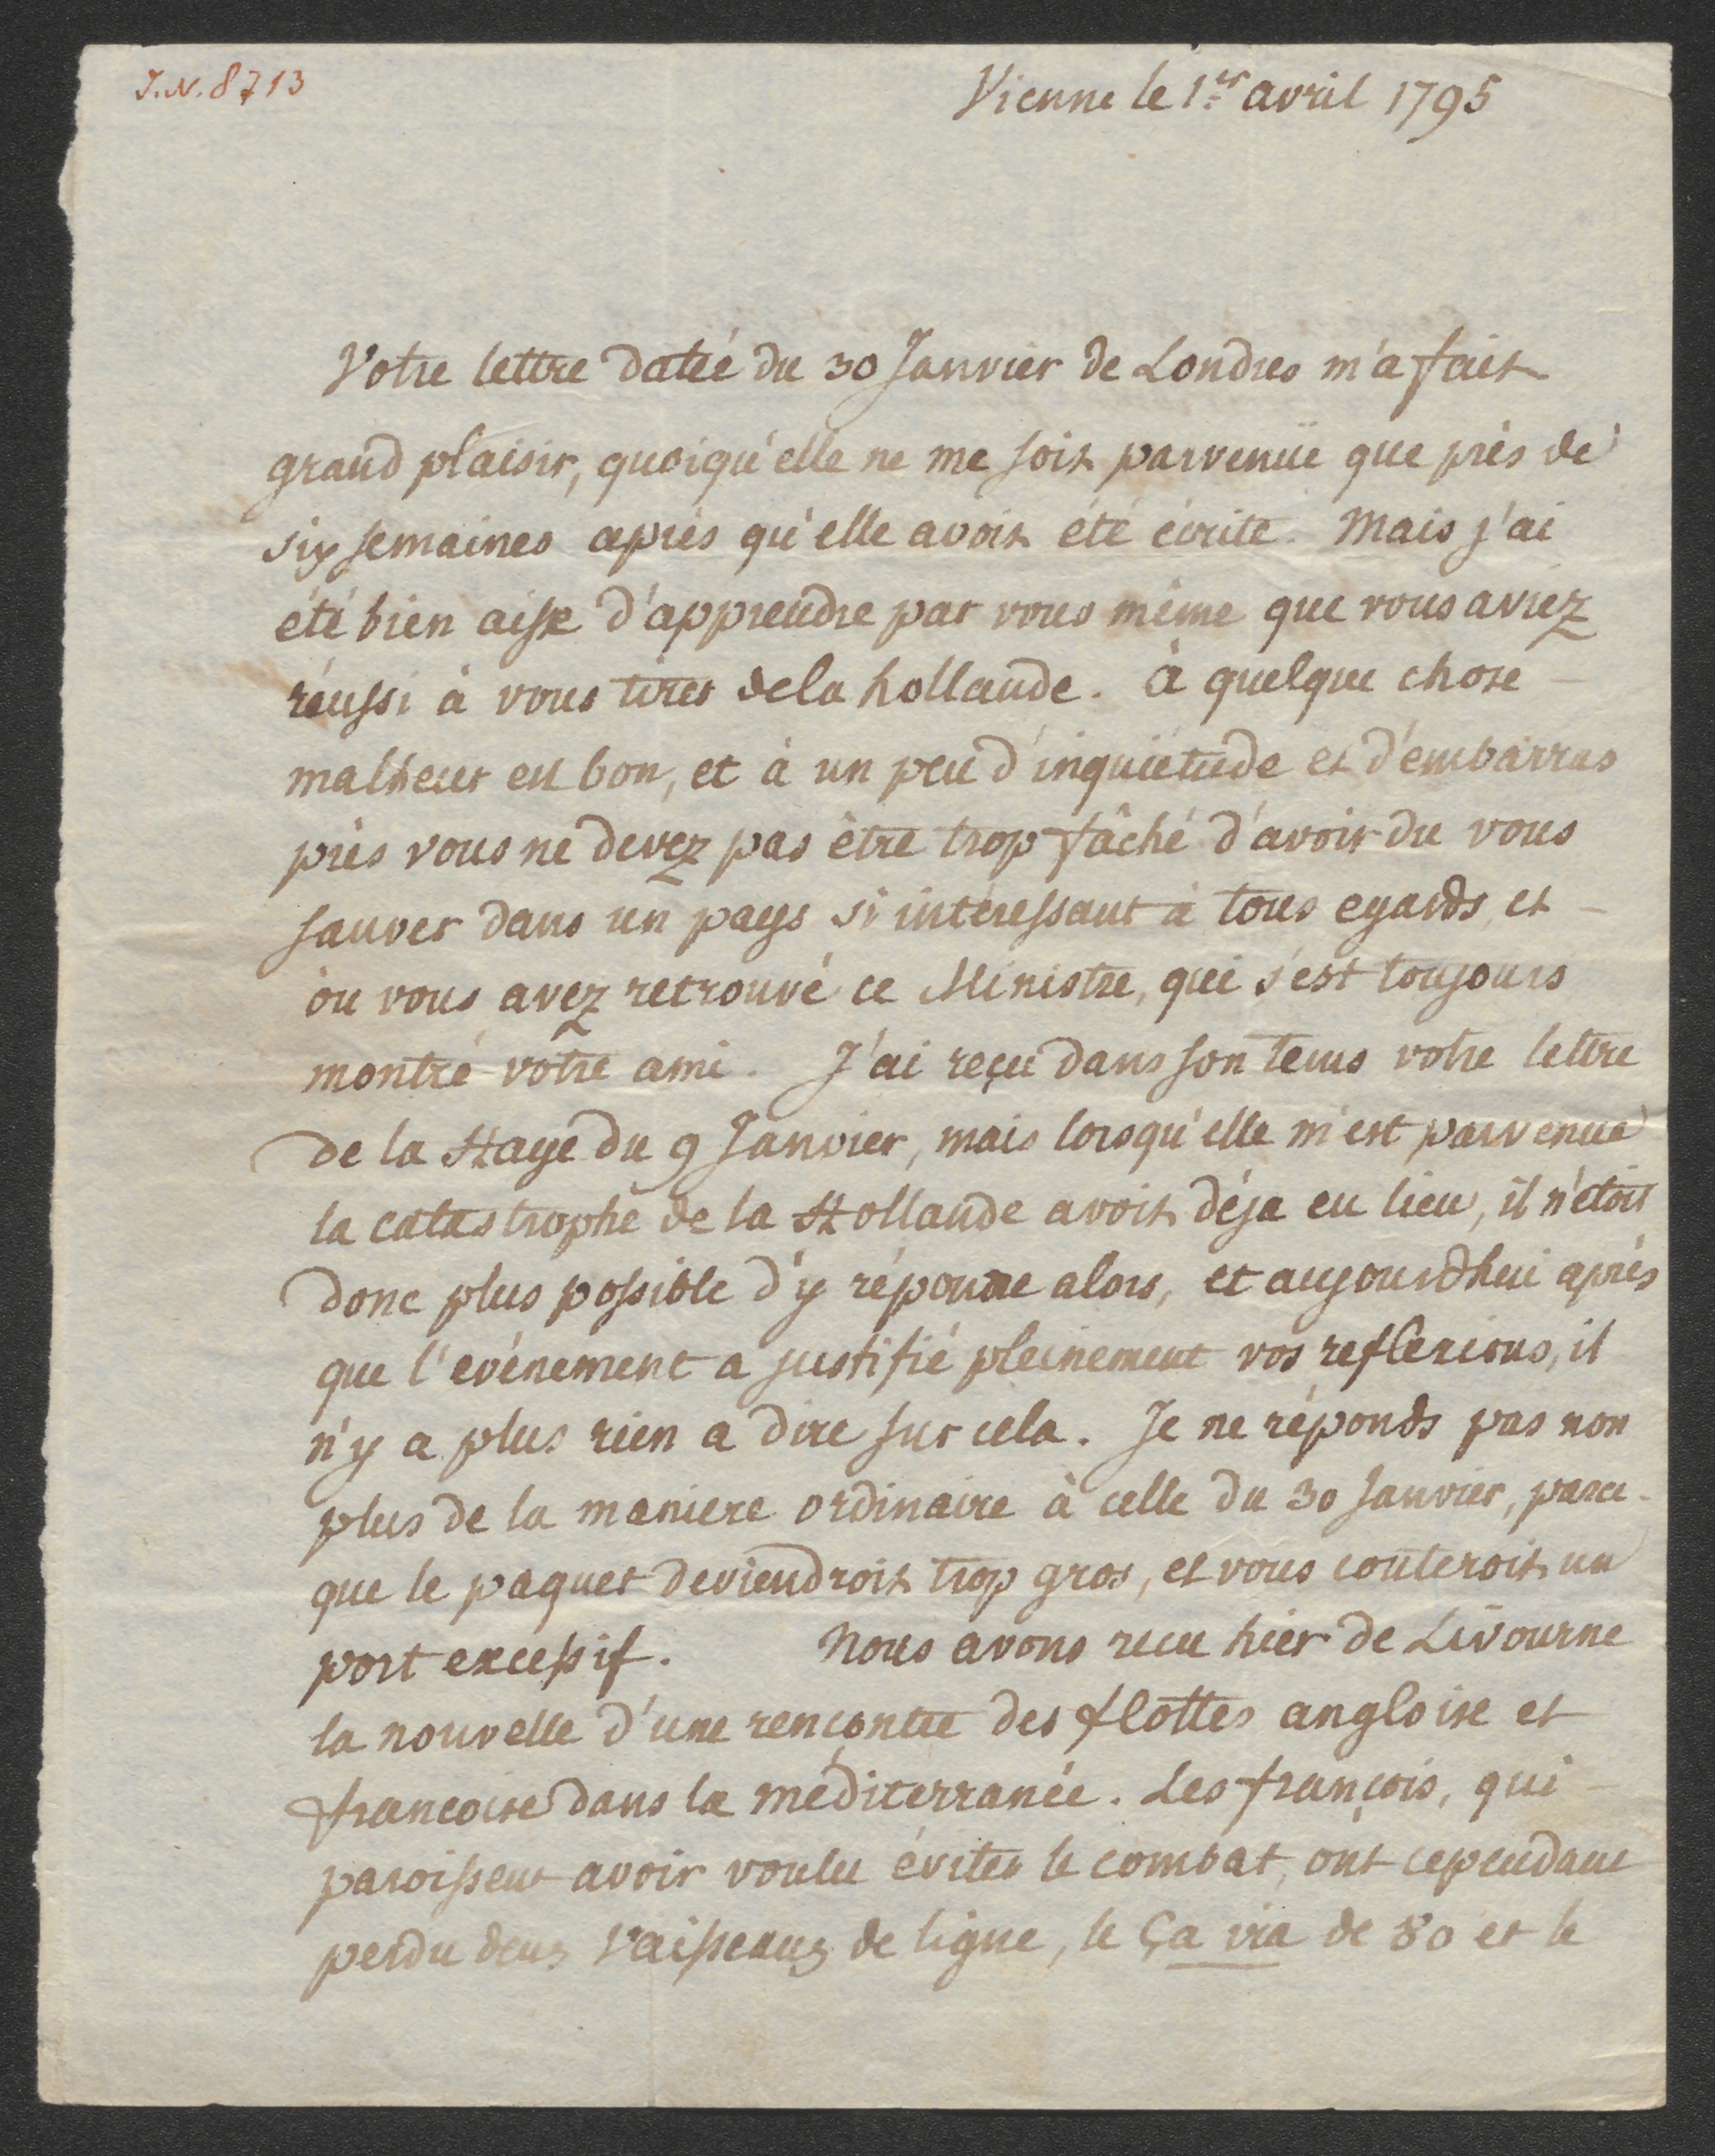 J.N. 8713
Vienne le 1er avril 1795
Votre lettre datée du 30 Janvier de Londres m'a fait
grand plaisir, quoiqu'elle ne me soit parvenüe que près de
six semaines après qu'elle avoit été écrite. Mais j'ai
été bien aise d'apprendre par vous même que vous aviez
réussi à vous tirer de la hollande. à quelque chose
malheur est bon, et à un peu d'inquiétude et d'embarras
près vous ne devez pas être trop fâché d'avoir du vous
sauver dans un pays si intéressant à tous egards, et
où vous avez retrouvé ce Ministre, qui s'est toujours
montré votre ami. J'ai reçu dans son tems votre lettre
de la Haye du 9 Janvier, mais lorsqu'elle m'est parvenue
la catastrophe de la Hollande avoit déja eu lieu, il n'étoit
donc plus possible d'y répondre alors, et aujourdhui après
que l'evénement a justifié pleinement vos reflexions, il
n'y a plus rien a dire sur cela. Je ne réponds pas non
plus de la maniere ordinaire à celle du 30 Janvier, parce
que le paquet deviendroit trop gros, et vous couteroit un
port excessif. Nous avons recu hier de Livourne
la nouvelle d'une rençontre des flottes angloise et
francoise dans la méditerranée. Les françois, qui
paroissent avoir voulu éviter le combat, ont cependant
perdu deux Vaisseaux de ligne, le Ça ira de 80 et le